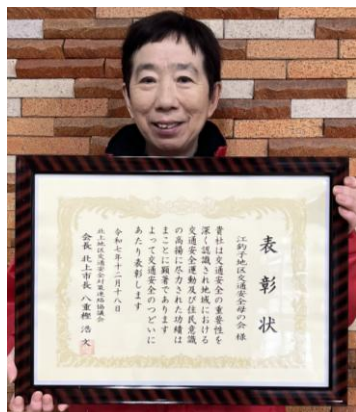 表彰状
江釣子地区交通安全母の会 様
貴社は交通安全の重要性を
深く認識され地域における
交通安全運動及び住民意識
の高揚に尽力された功績は
まことに顕著であります
よって交通安全のつどいに
あたり表彰します
令和七年十二月十八日
北上地区交通安全対策連絡協議会
会長 北上市長 八重樫 浩文